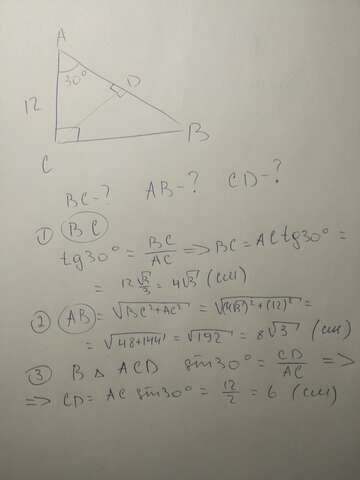 A
30°
D
12
B
C
BC-? AB-? CD-?
① BC
tg30° = BC/AC => BC = AC tg30° =
= 12√3/3 = 4√3 (см)
② AB = √BC²+AC² = √(4√3)²+(12)² =
= √48+144 = √192 = 8√3 (см)
③ В △ ACD sin30° = CD/AC =>
=> CD = AC sin30° = 12/2 = 6 (см)